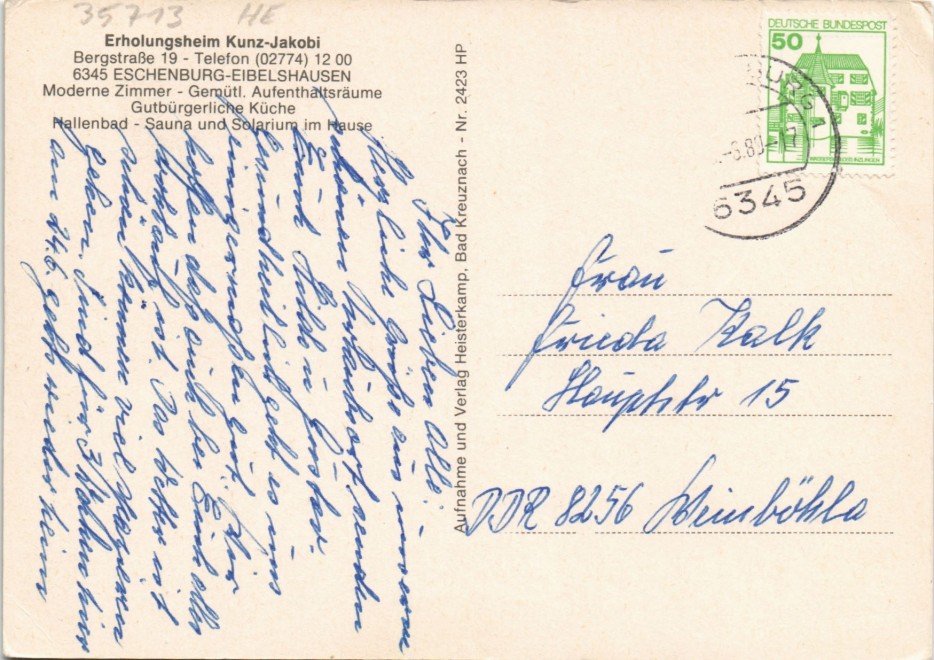 35713 HE
Erholungsheim Kunz-Jakobi
Bergstraße 19 - Telefon (02774) 12 00
6345 ESCHENBURG-EIBELSHAUSEN
Moderne Zimmer - Gemütl. Aufenthaltsräume
Gutbürgerliche Küche
Hallenbad - Sauna und Solarium im Hause
Ihr Lieben alle!
Herzliche Grüße aus unserem
schönen Urlaubsort senden
Euch Hilde u. Gustav.
Gesundheitlich geht es uns
einigermaßen gut. Wir
hoffen daß auch bei Euch alles
wohlauf ist. Das Wetter ist
schön können viel spazieren
gehen. Sind für 3 Wochen hier
am 24.6. gehts wieder heim
Aufnahme und Verlag Heisterkamp, Bad Kreuznach - Nr. 2423 HP
DEUTSCHE BUNDESPOST
50
BURG 1
-6.80-17
6345
Frau
Frieda Kalk
Hauptstr 15
DDR 8256 Weinböhla